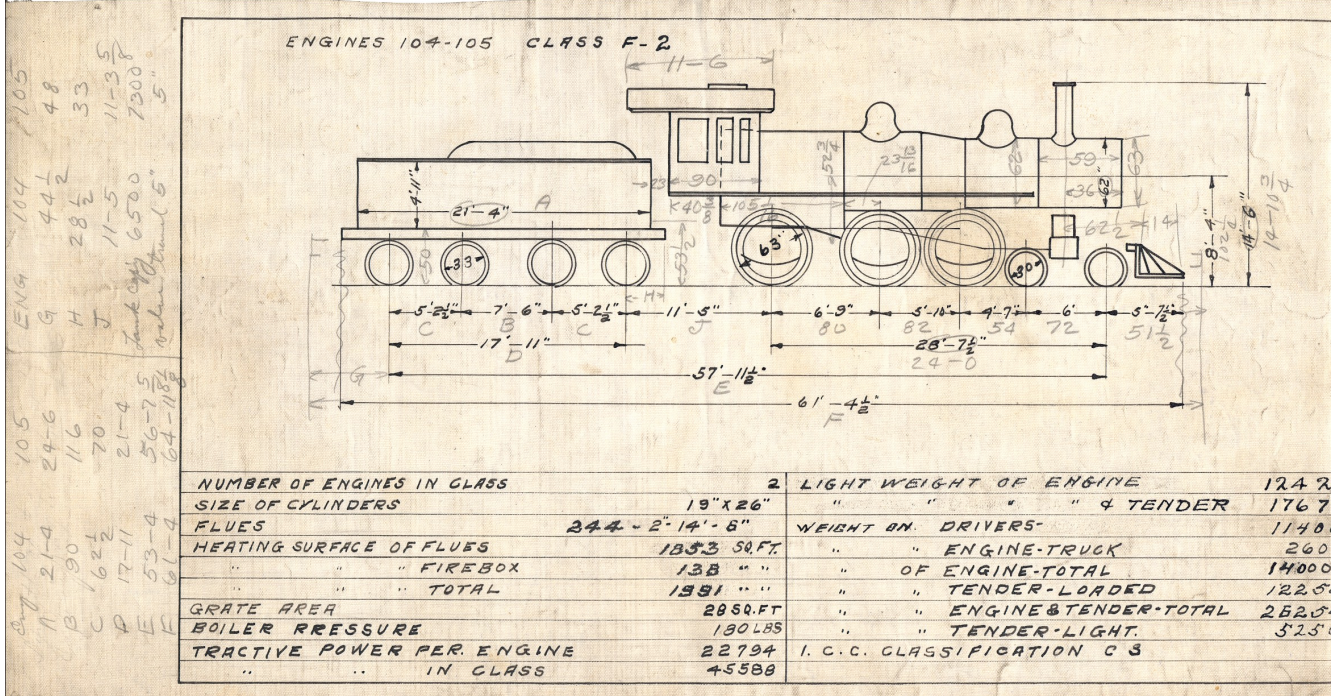 ENGINES 104-105 CLASS F-2
11-6
4'-11"
21'-4" A
23
90
52 3/4
23 13/16
62
59
63
36
62"
K40 3/8
105
62 1/2
14
8'-4"
102 1/4
14'-6"
14-10 3/4
50
33
53 1/2
63"
30
H
5'-2 1/2" 7'-6" 5'-2 1/2" 11'-5" 6'-9" 5'-10" 4'-7" 6' 5'-7 1/2"
C B C J 80 82 54 72 51 1/2
17'-11" 28'-7 1/2"
D 24-0
G
57'-11 1/2"
E
61'-4 1/2"
F
NUMBER OF ENGINES IN CLASS 2
SIZE OF CYLINDERS 19" X 26"
FLUES 244 - 2"-14'-6"
HEATING SURFACE OF FLUES 1853 SQ.FT.
" " " FIREBOX 138 " "
" " " TOTAL 1991 " "
GRATE AREA 28 SQ.FT
BOILER RRESSURE 180 LBS
TRACTIVE POWER PER. ENGINE 22794
" " IN CLASS 45588
LIGHT WEIGHT OF ENGINE 1242
" " " " & TENDER 1767
WEIGHT ON DRIVERS- 1140
" " ENGINE-TRUCK 260
" OF ENGINE-TOTAL 14000
" " TENDER-LOADED 1225
" " ENGINE & TENDER-TOTAL 2625
" " TENDER-LIGHT. 525
I. C. C. CLASSIFICATION C 3
Eng. 104 105 ENG 104 105
A 21-4 24-6 G 44 1/2 48
B 90 116 H 28 1/2 33
C 62 1/2 70 J 11-5 11-3 5/8
D 17-11 21-4 Tank Cap 6500 7300
E 53-4 56-7 5/8 valve travel 5" 5"
F 61-4 64-11 8 1/8